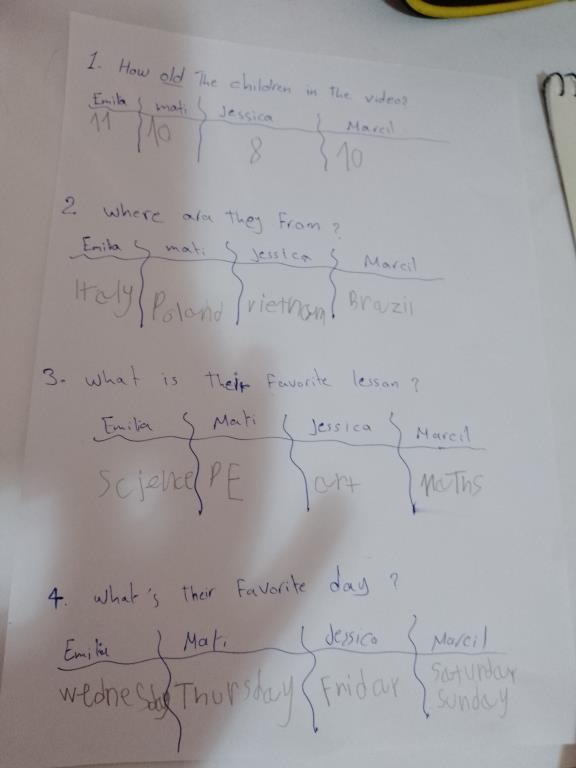 1. How old The children in The video?
Emilia mati Jessica Marcil
11 10 8 10
2 where are they From?
Emilia mati Jessica Marcil
Italy Poland vietnam Brazil
3. what is their Favorite lesson?
Emilia Mati Jessica Marcil
Science PE art maths
4. what's their Favorite day?
Emilia Mati Jessica Marcil
Wednesday Thursday Fridar Saturdar
Sunday